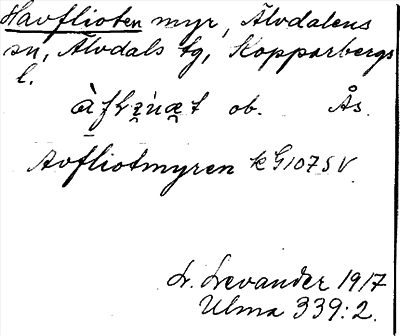 Havflioten myr, Älvdalens
sn, Älvdals tg, Kopparbergs
l.
ob. Ås.
Avfliotmyren k G 107 SV
L. Levander 1917
Ulma 339:2.